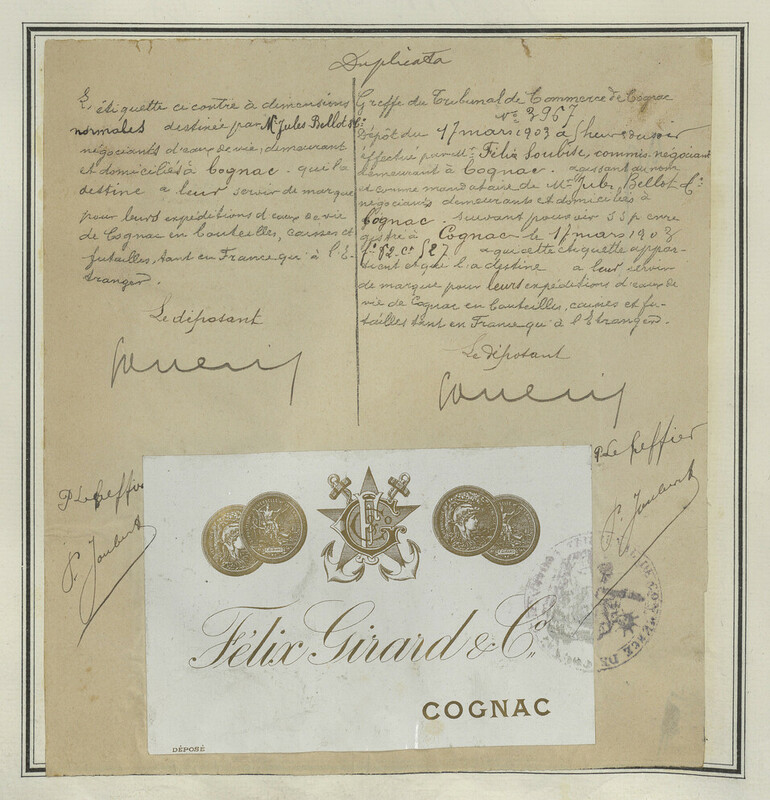 Duplicata
L'étiquette ci contre à dimensions
normales destinée par Mr Jules Bellot & Cie
négociants d'eaux de vie, demeurant
et domiciliés à Cognac. qui la
destine a leur servir de marque
pour leurs expéditions d'eaux de vie
de Cognac en bouteilles, caisses et
futailles, tant en France qu'à l'E-
tranger.
Le déposant
Greffe du Tribunal de Commerce de Cognac
No 3967
Dépôt du 17 mars 1903 à heure du soir
effectué par Mr Félix Soubise, commis négociant
demeurant à Cognac. agissant au nom
et comme mandataire de Mrs Jules Bellot & Cie
négociants demeurants et domiciliés à
Cognac. suivant pouvoir S S p enre
gistré à Cognac le 17 mars 1903
a qui cette étiquette appar-
tient et qui l'a destine a leur servir
de marque pour leurs expéditions d'eaux de
vie de Cognac en bouteilles, caisses et fu-
tailles tant en France qu'à l'Etranger.
Le déposant
P. Le Greffier
P. Le Greffier
Félix Girard & Co.
COGNAC
DÉPOSÉ